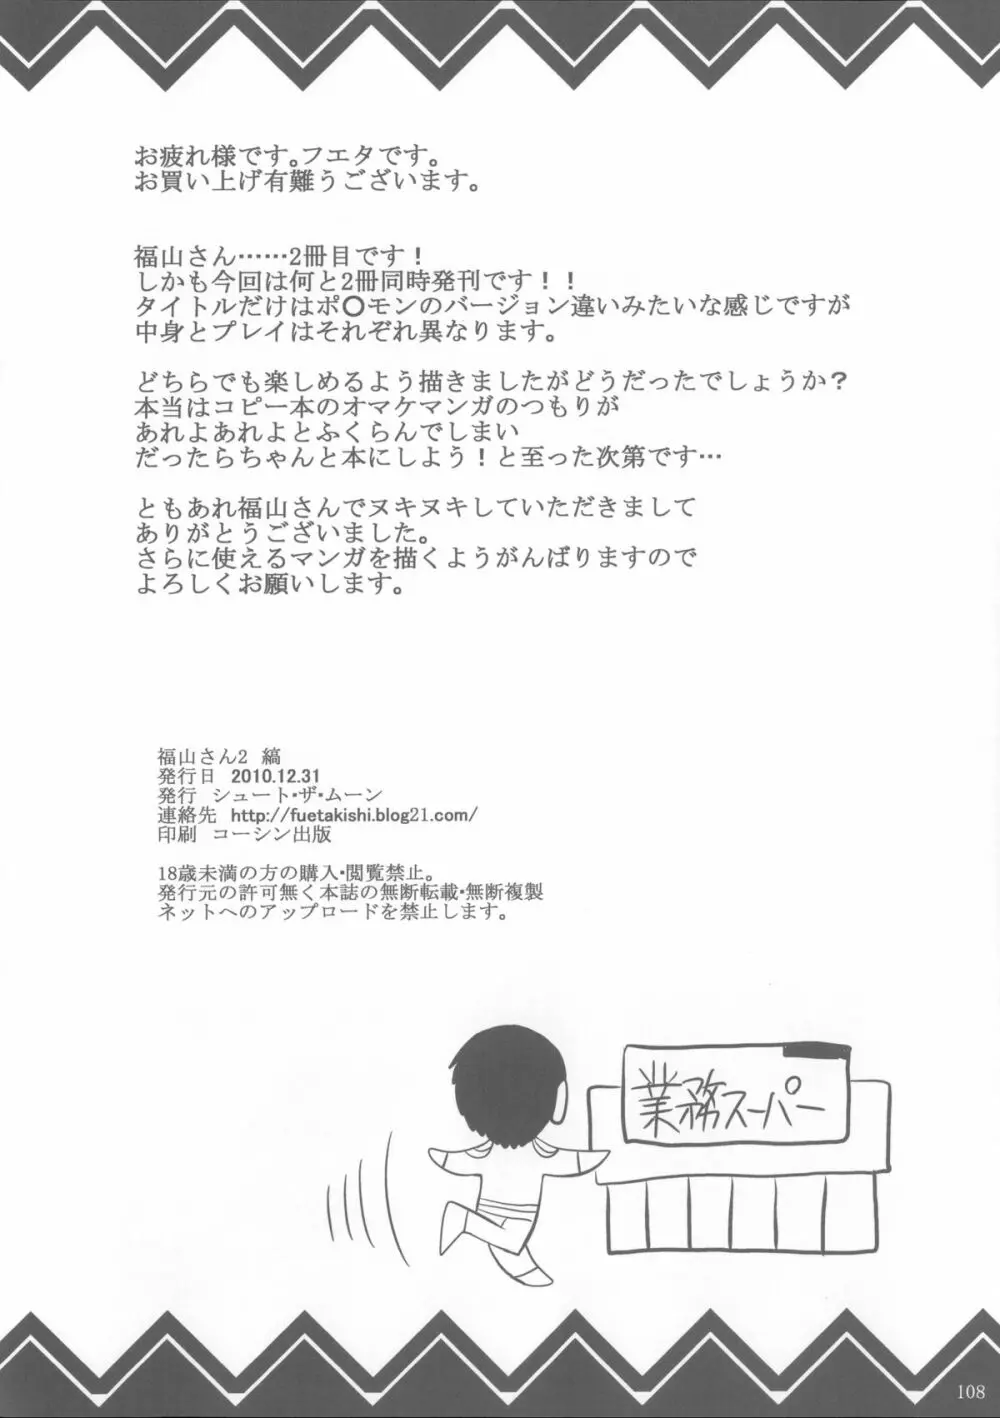 お疲れ様です。フエタです。
お買い上げ有難うございます。
福山さん……2冊目です！
しかも今回は何と2冊同時発刊です！！
タイトルだけはポ〇モンのバージョン違いみたいな感じですが
中身とプレイはそれぞれ異なります。
どちらでも楽しめるよう描きましたがどうだったでしょうか？
本当はコピー本のオマケマンガのつもりが
あれよあれよとふくらんでしまい
だったらちゃんと本にしよう！と至った次第です…
ともあれ福山さんでヌキヌキしていただきまして
ありがとうございました。
さらに使えるマンガを描くようがんばりますので
よろしくお願いします。
福山さん2　縞
発行日　2010.12.31
発行　シュート・ザ・ムーン
連絡先　http://fuetakishi.blog21.com/
印刷　コーシン出版
18歳未満の方の購入・閲覧禁止。
発行元の許可無く本誌の無断転載・無断複製
ネットへのアップロードを禁止します。
業務スーパー
108